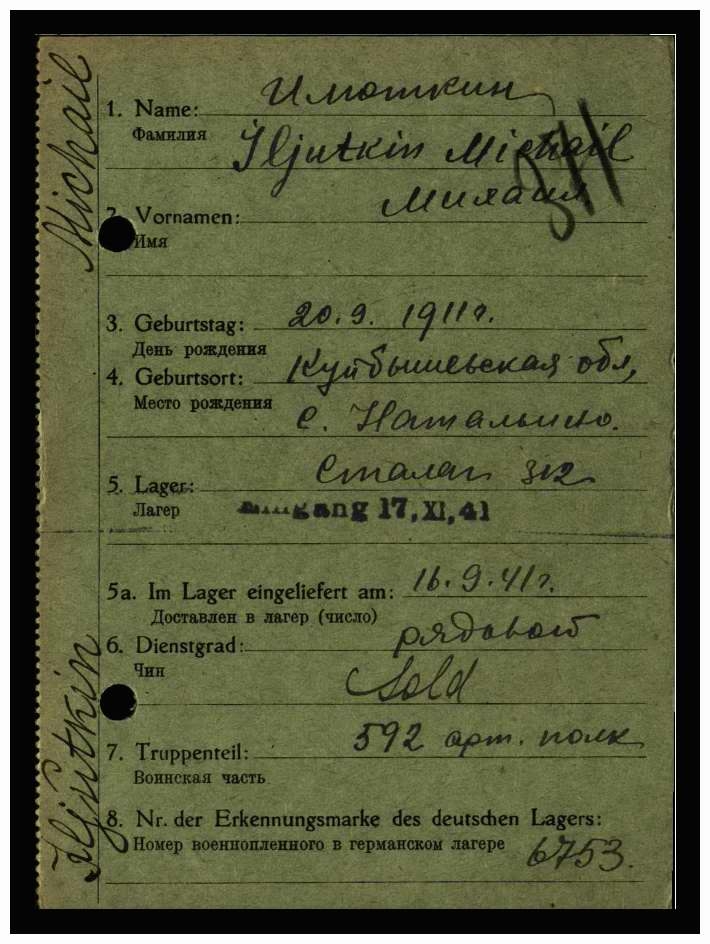 Michail
Iljutkin
1. Name: Илюткин
Фамилия
Iljutkin Michail
Михаил
2. Vornamen:
Имя
3. Geburtstag: 20.9. 1911г.
День рождения
4. Geburtsort: Куйбышевская обл,
Место рождения
с. Натальино.
5. Lager: Сталаг 312
Лагер
Eingang 17.XI.41
5a. Im Lager eingeliefert am: 16.9.41г.
Доставлен в лагер (число)
6. Dienstgrad: рядовой
Чин
Sold
7. Truppenteil: 592 арт. полк
Воинская часть
8. Nr. der Erkennungsmarke des deutschen Lagers:
Номер военнопленного в германском лагере
6753.